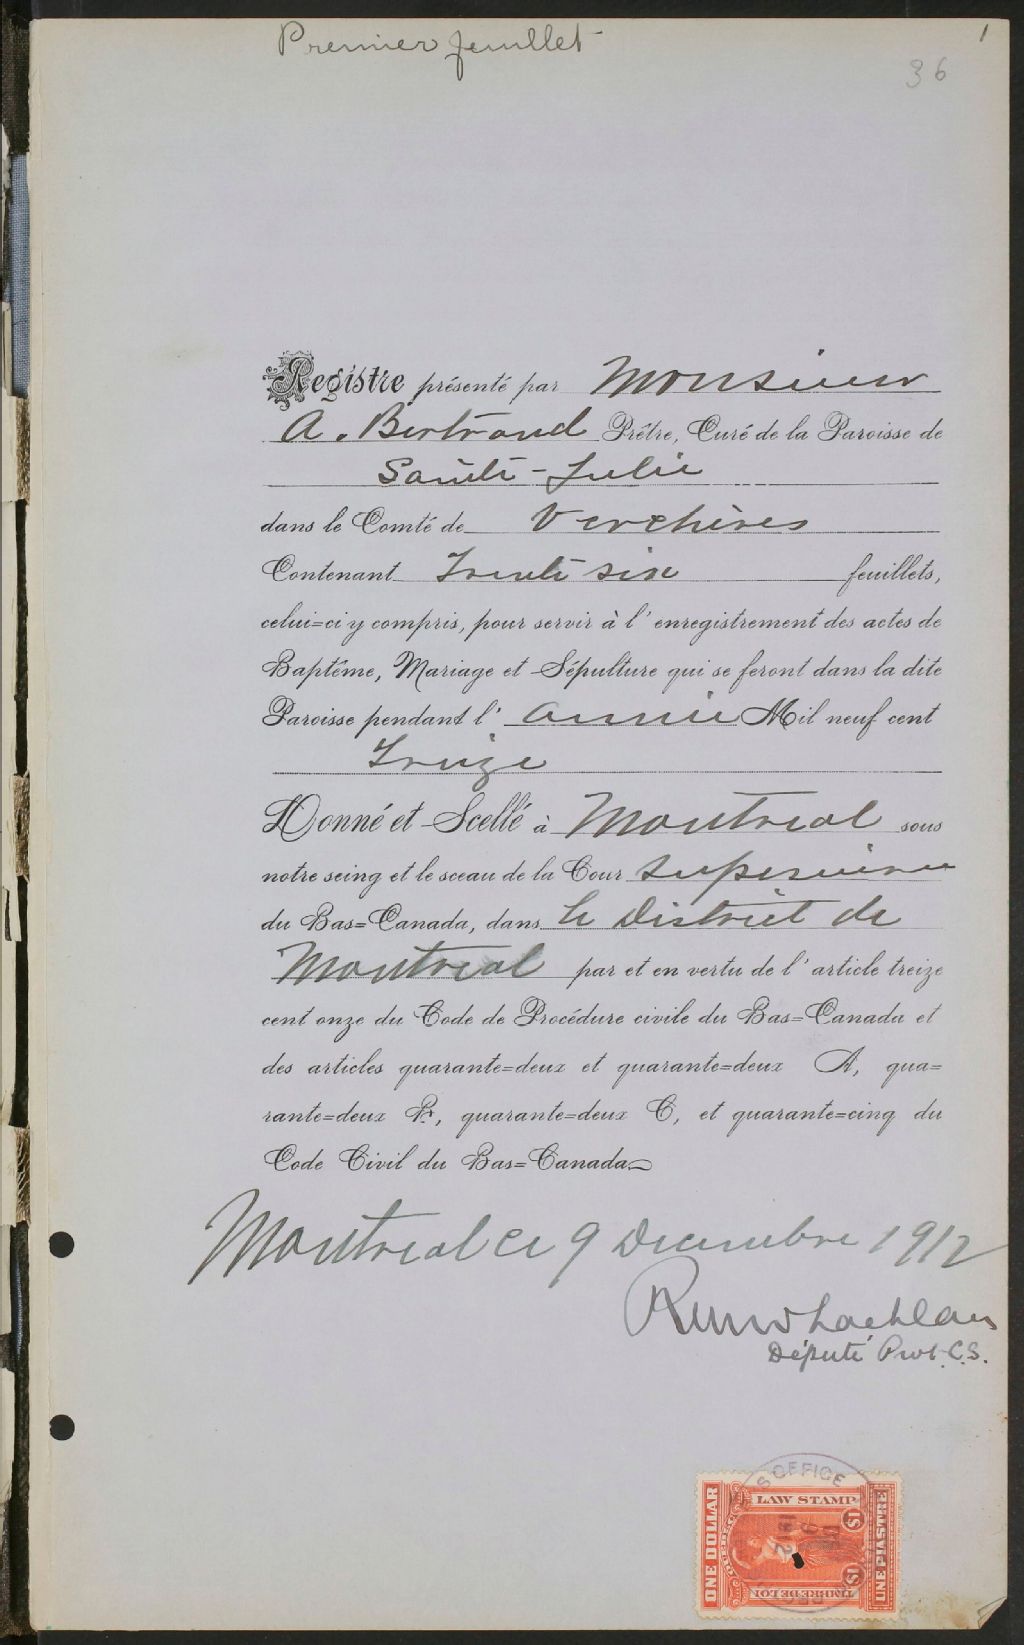 Premier feuillet
1
36
Registre présenté par Monsieur
A. Bertrand Prêtre, Curé de la Paroisse de
Sainte-Julie
dans le Comté de Verchères
Contenant Trente six feuillets,
celui=ci y compris, pour servir à l'enregistrement des actes de
Baptême, Mariage et Sépulture qui se feront dans la dite
Paroisse pendant l'année Mil neuf cent
Treize
Donné et Scellé à Montreal sous
notre seing et le sceau de la Cour Superieure
du Bas=Canada, dans le District de
Montreal par et en vertu de l'article treize
cent onze du Code de Procédure civile du Bas=Canada et
des articles quarante=deux et quarante=deux A, qua=
rante=deux B, quarante=deux C, et quarante=cinq du
Code Civil du Bas=Canada
Montreal ce 9 Decembre 1912
Lachlan
Député Prot. C.S.
S OFFICE
LAW STAMP
ONE DOLLAR
UNE PIASTRE
$1
$1
TIMBRE DE LOI
9
1912